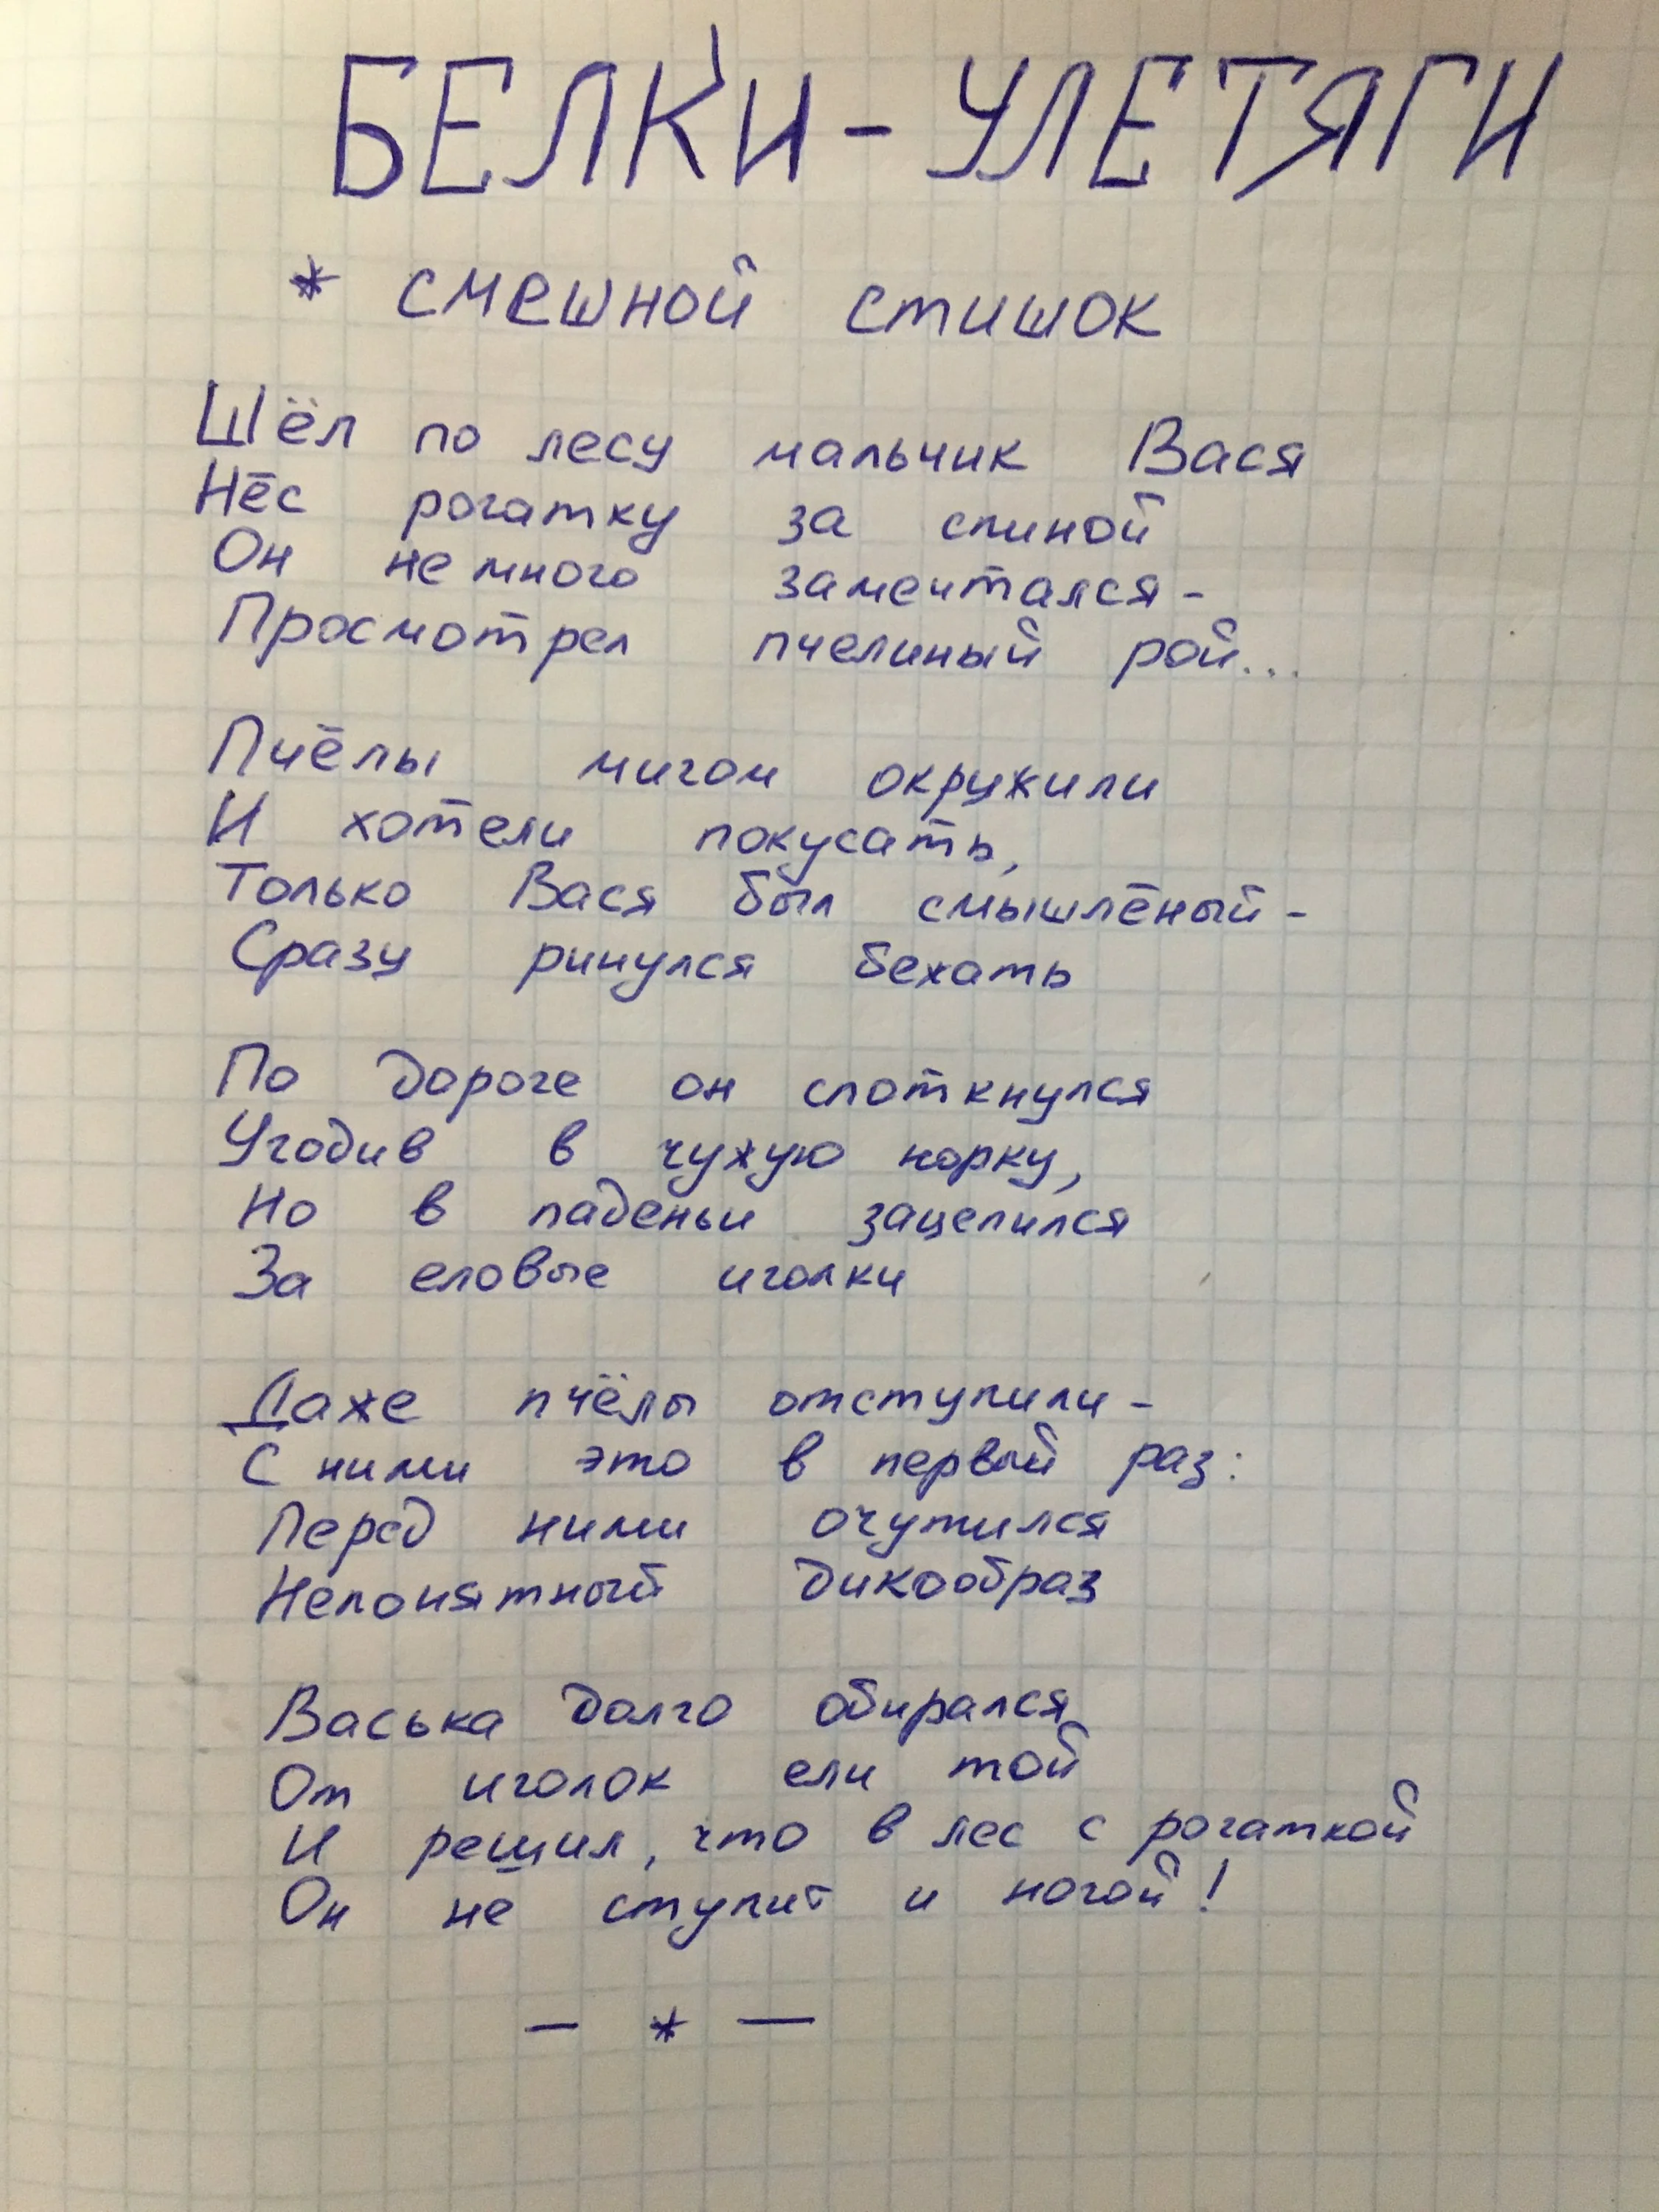 БЕЛКИ - УЛЕТЯГИ
* смешной стишок
Шёл по лесу мальчик Вася
Нёс рогатку за спиной
Он немного замечтался -
Просмотрел пчелиный рой...
Пчёлы мигом окружили
И хотели покусать,
Только Вася был смышлёный -
Сразу ринулся бежать
По дороге он споткнулся
Угодив в чужую норку,
Но в паденьи зацепился
За еловые иголки
Даже пчёлы отступили -
С ними это в первый раз:
Перед ними очутился
Непонятный дикообраз
Васька долго обирался
От иголок ели той
И решил, что в лес с рогаткой
Он не ступит и ногой!
— * —